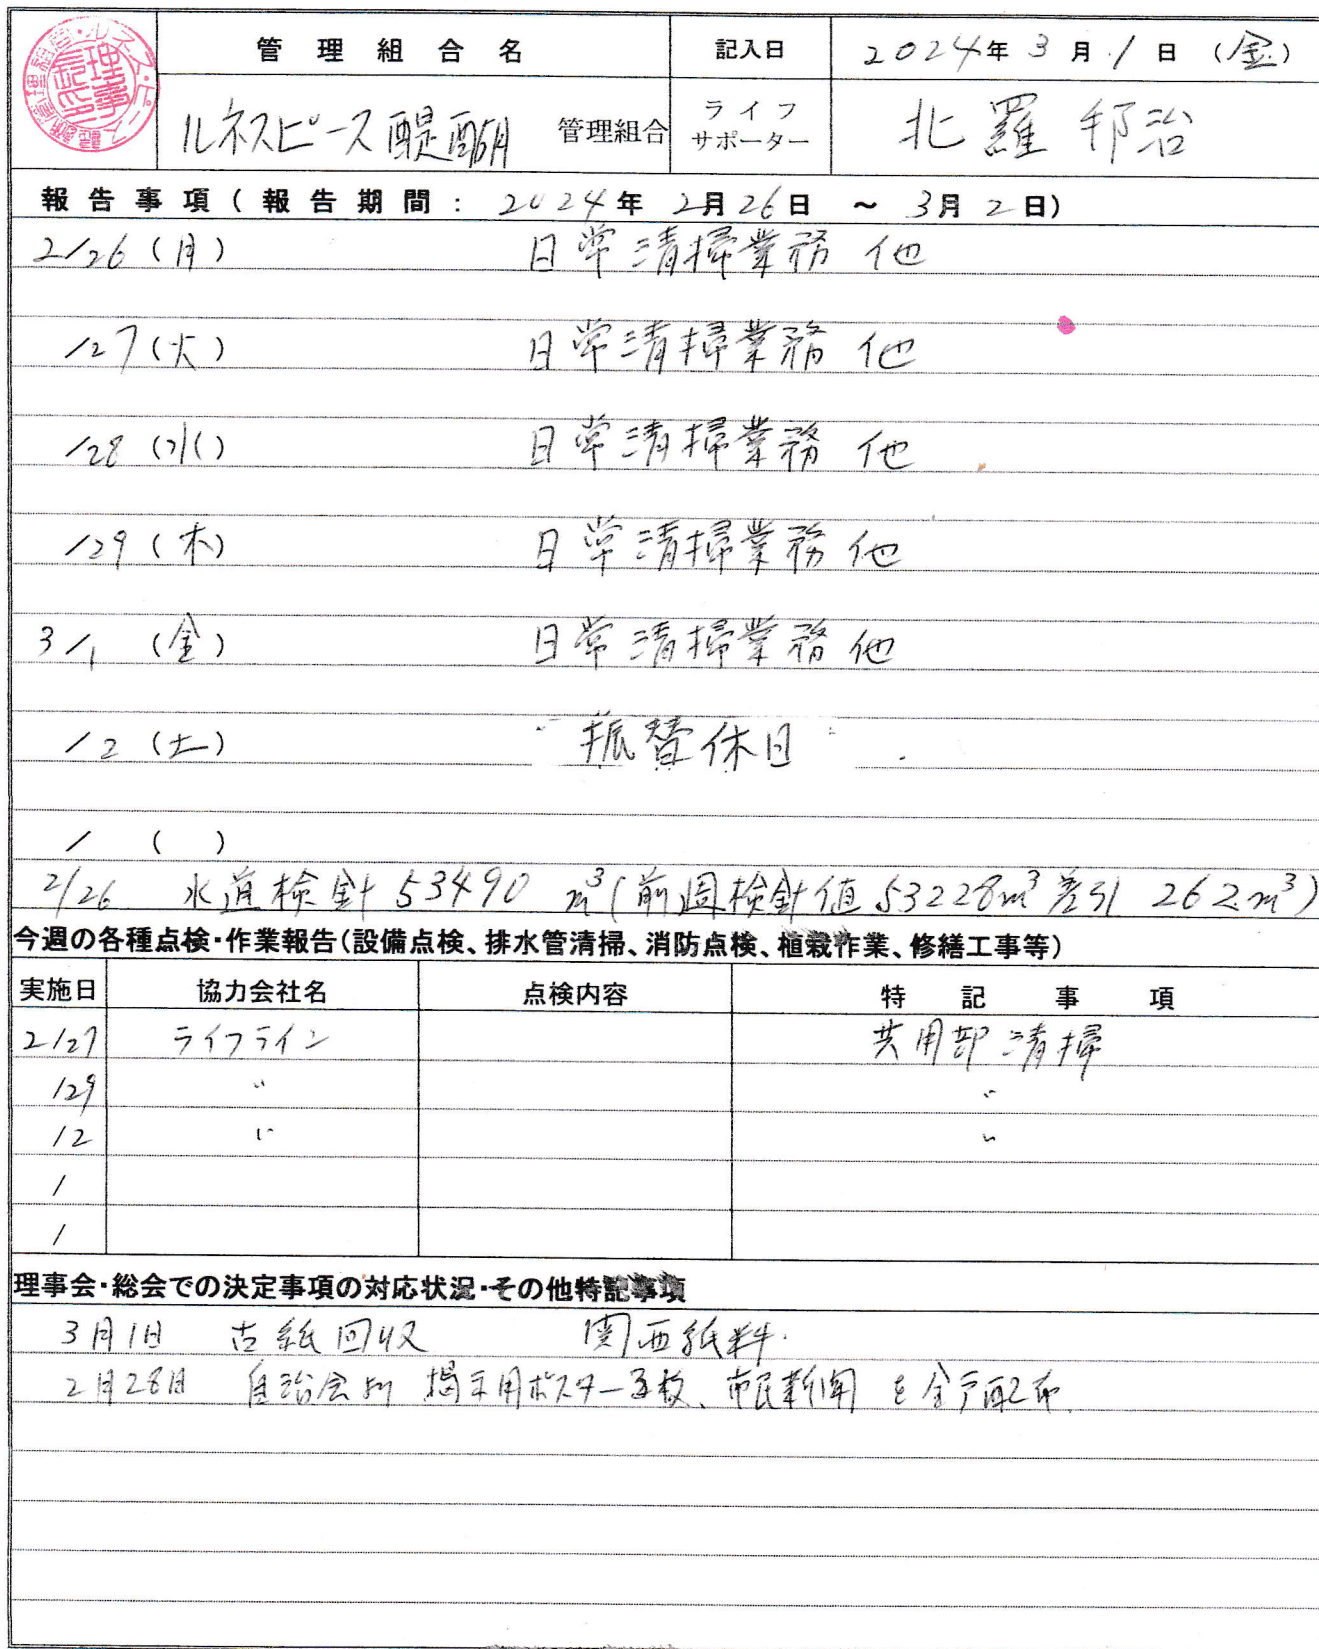 管理組合名 記入日 2024年3月1日(金)
ルネスピース醍醐 管理組合 ライフサポーター 北羅 邦治
報告事項(報告期間: 2024年 2月26日 ~ 3月2日)
2/26(月) 日常清掃業務 他
/27(火) 日常清掃業務 他
/28(水) 日常清掃業務 他
/29(木) 日常清掃業務 他
3/1(金) 日常清掃業務 他
/2(土) 振替休日
/ ( )
2/26 水道検針 53490 m³(前週検針値 53228m³ 差引 262m³)
今週の各種点検・作業報告(設備点検、排水管清掃、消防点検、植栽作業、修繕工事等)
実施日 協力会社名 点検内容 特記事項
2/27 ライフライン 共用部清掃
/29 〃 〃
/2 〃 〃
/
/
理事会・総会での決定事項の対応状況・その他特記事項
3月1日 古紙回収 関西紙料
2月28日 自治会より 掲示用ポスター 枚、市民新聞 を全戸配布